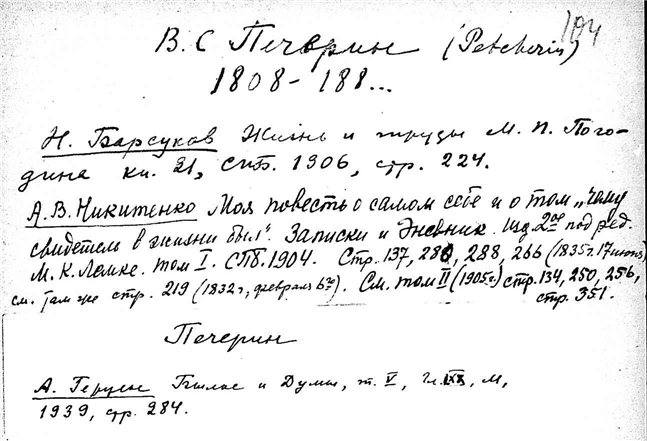 104
В. С Печерин (Petcherin)
1808 - 188...
Н. Барсуков Жизнь и труды М. П. Пого-
дина кн. 21, СПБ. 1906, стр. 224.
А. В. Никитенко Моя повесть о самом себе и о том „чему
свидетель в жизни был". Записки и Дневник. Изд 2ое под ред.
М. К. Лемке. том I. СПб. 1904. Стр. 137, 288, 266 (1835 г. 17 июня)
см. там же стр. 219 (1832 г, февраль 6го). См. том II (1905 г.) стр. 134, 250, 256,
стр. 351.
Печерин
А. Герцен Былое и Думы, т. V, Гл. М,
1939, стр. 284.